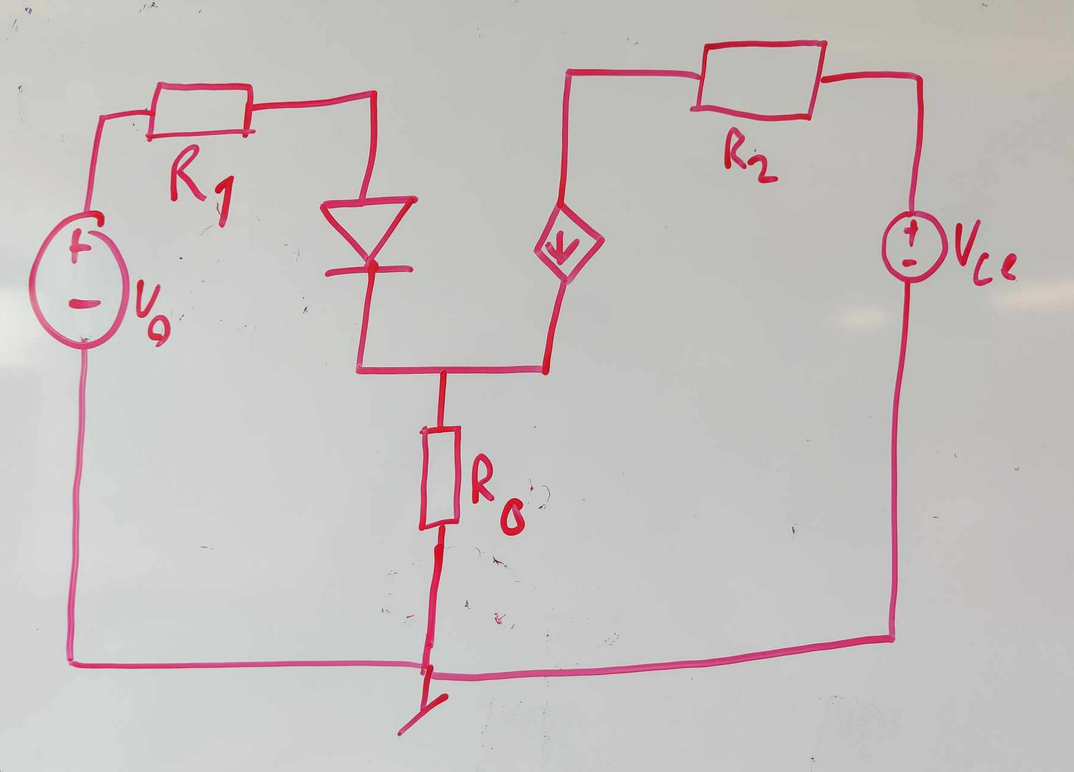 R1
R2
+
-
V0
+
-
Vce
R0